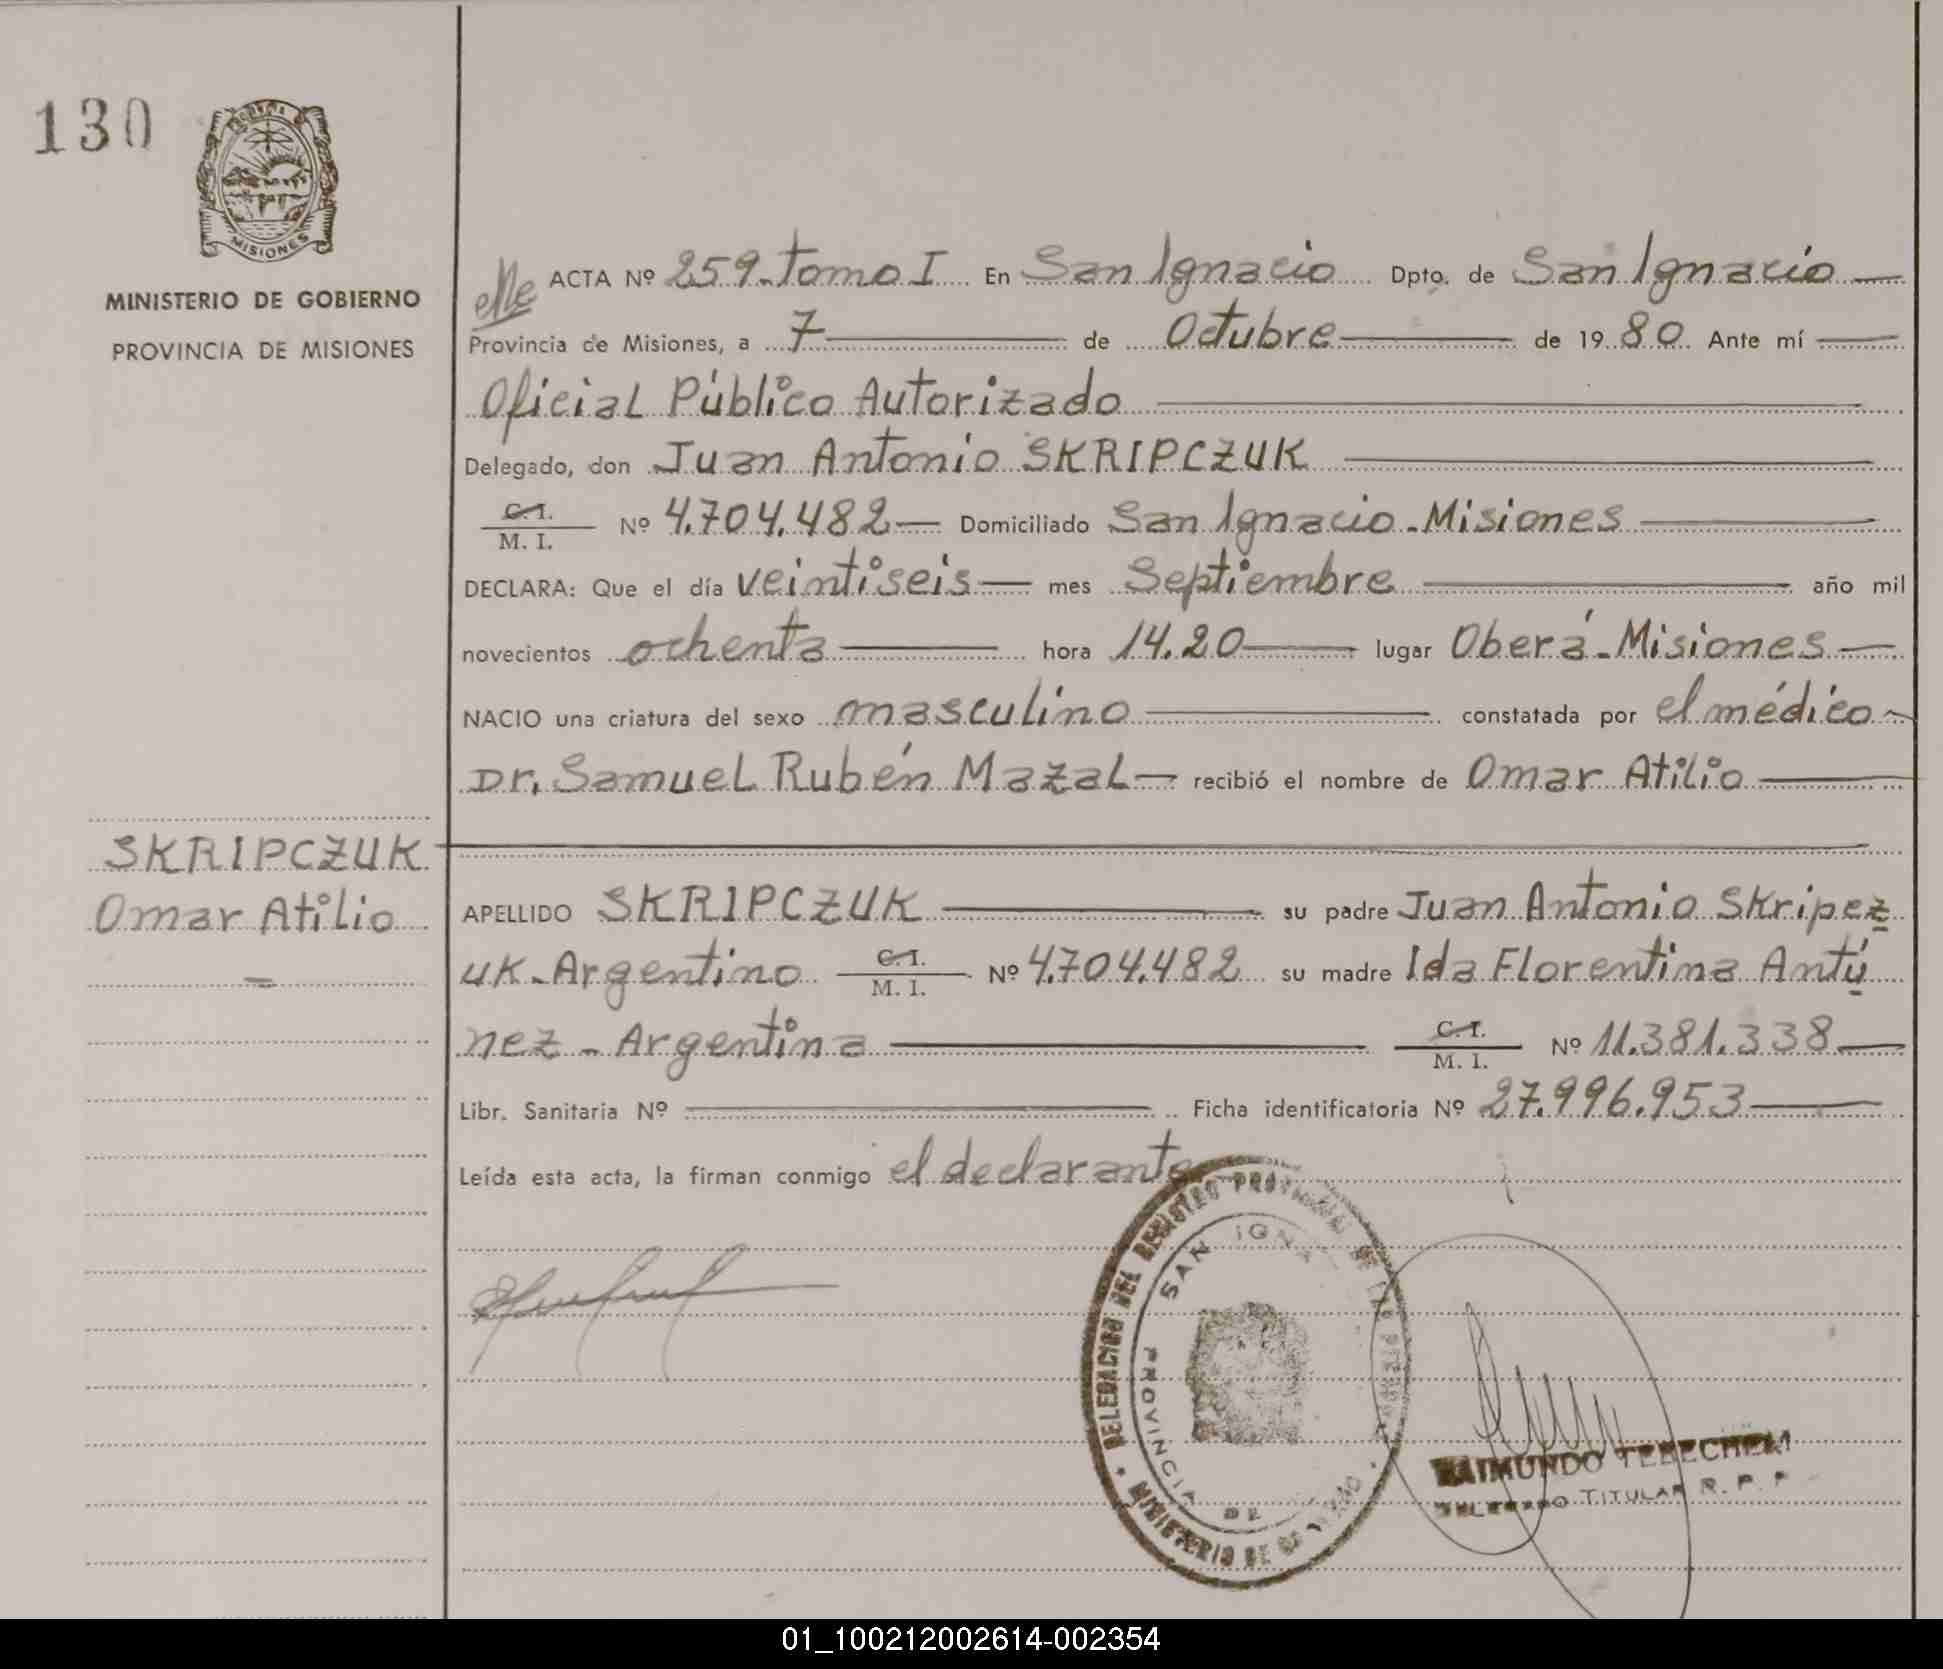 130
MISIONES
MINISTERIO DE GOBIERNO
PROVINCIA DE MISIONES
ACTA Nº 259-Tomo I En San Ignacio Dpto. de San Ignacio
Provincia de Misiones, a 7 de Octubre de 1980 Ante mí
Oficial Público Autorizado
Delegado, don Juan Antonio SKRIPCZUK
C.I.
M. I. Nº 4.704.482 Domiciliado San Ignacio-Misiones
DECLARA: Que el día veintiseis mes Septiembre año mil
novecientos ochenta hora 14.20 lugar Oberá-Misiones
NACIO una criatura del sexo masculino constatada por el médico
Dr. Samuel Rubén Mazal recibió el nombre de Omar Atilio
SKRIPCZUK
Omar Atilio
APELLIDO SKRIPCZUK su padre Juan Antonio Skripcz
uk-Argentino C.I. M. I. Nº 4.704.482 su madre Ida Florentina Antú
nez-Argentina C.I. M. I. Nº 11.381.338
Libr. Sanitaria Nº Ficha identificatoria Nº 27.996.953
Leída esta acta, la firman conmigo el declarante
DELEGACION DEL REGISTRO PROVINCIAL DE LAS PERSONAS
SAN IGNA
PROVINCIA DE
MINISTERIO DE GOBIERNO
RAIMUNDO TEBECHEM
DELEGADO TITULAR R. P. P
01_100212002614-002354